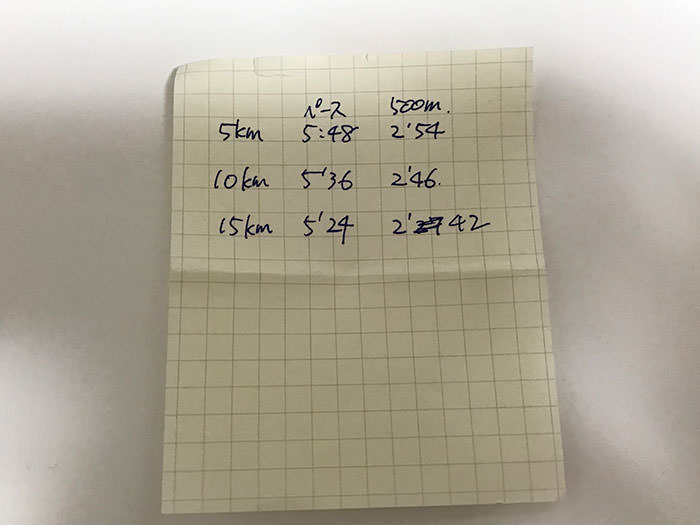 ペース 500m.
5km 5:48 2'54
10km 5'36 2'46.
15km 5'24 2' 42